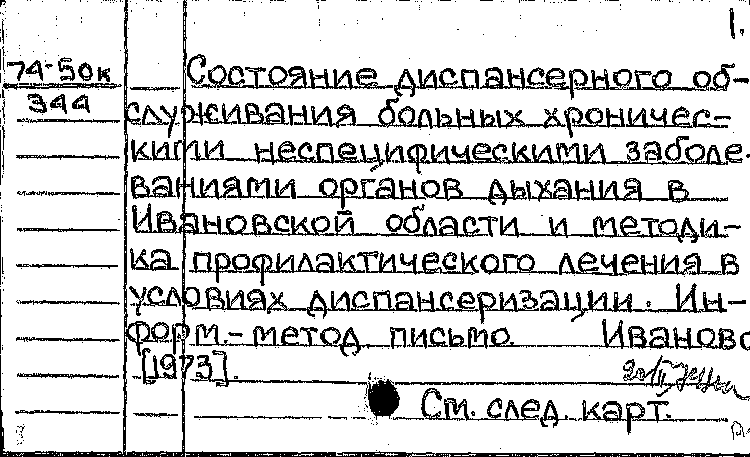 1.
74-50к
344
Состояние диспансерного об-
служивания больных хроничес-
кими неспецифическими заболе-
ваниями органов дыхания в
Ивановской области и методи-
ка профилактического лечения в
условиях диспансеризации. Ин-
форм.-метод. письмо. Иваново
[1973].
См. след. карт.